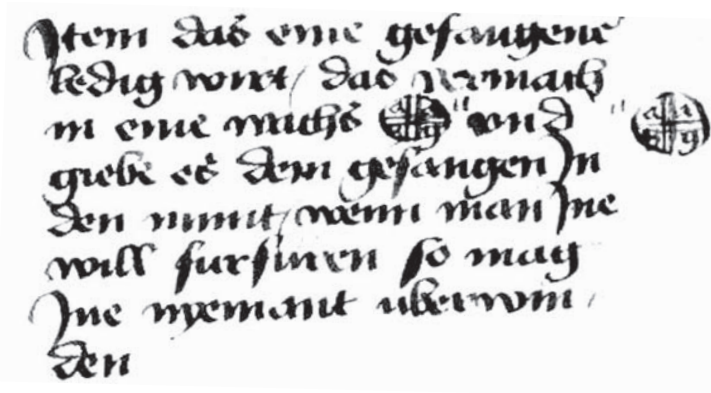 Item das eine gefangene
ledig wirt / das vermach
in eine wachs " vnd "
giebe es dem gefangen Jn
den munt / wenn man Jne
will furfuren so mag
Jne nyemant uberwin /
den